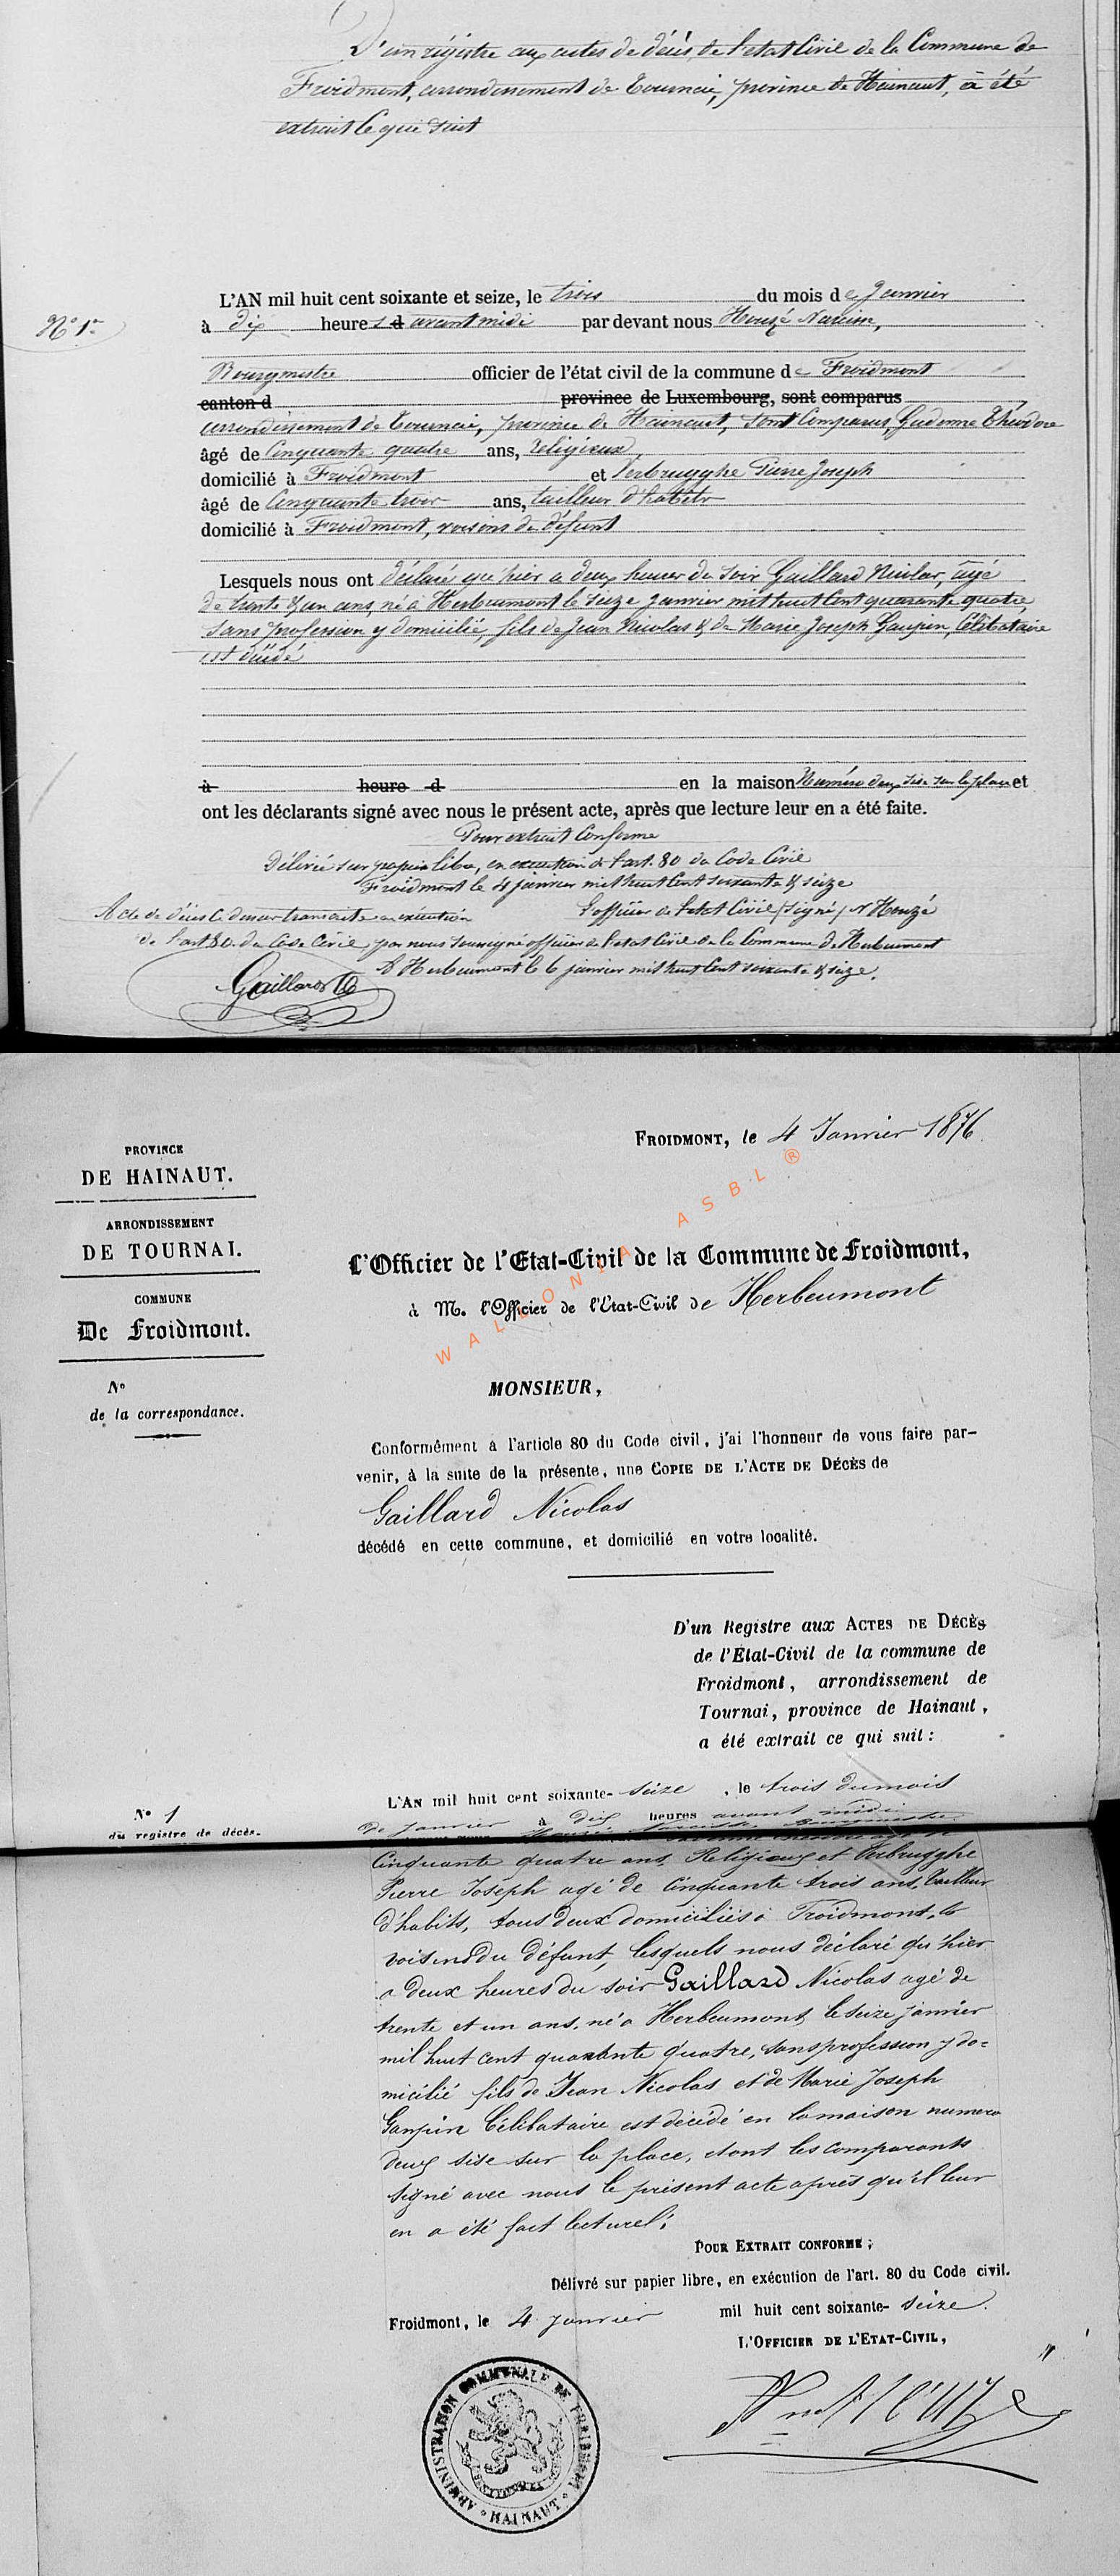 D'un régistre aux actes de décès de l'etat Civil de la Commune de
Froidmont, arrondissement de Tournai, province de Hainaut, à été
extrait ce qui suit
L'AN mil huit cent soixante et seize, le trois du mois de Janvier
N° 1er
à dix heures d avant midi par devant nous Houzé Narcisse,
Bourgmestre officier de l'état civil de la commune de Froidmont
canton d province de Luxembourg, sont comparus
arrondissement de Tournai, province de Hainaut, sont Comparus, Théodore
âgé de Cinquante quatre ans, réligieux,
domicilié à Froidmont et Verbrugghe Pierre Joseph
âgé de Cinquante trois ans, tailleur d'habits
domicilié à Froidmont, voisins du défunt
Lesquels nous ont déclaré que hier a deux heures du soir Gaillard Nicolas, agé
de trente & un ans, né à Herbeumont le seize janvier mil huit cent quarante quatre,
sans profession y domicilié, fils de Jean Nicolas & de Marie Joseph Célibataire
est décédé
à heure d en la maison Numéro deux sise sur la place et
ont les déclarants signé avec nous le présent acte, après que lecture leur en a été faite.
Pour extrait Conforme
Délivré sur papier libre, en exécution de l'art. 80 du Code Civil
Froidmont le 4 janvier mil huit Cent soixante & seize
Acte de décès ci dessus transcrite en exécution
L'officier de l'etat Civil (signé) N Houzé
de l'art 80 du Code Civil par nous soussigné officier de l'etat Civil de la Commune d'Herbeumont
A Herbeumont le 6 janvier mil huit Cent soixante & seize.
Gaillard
FROIDMONT, le 4 Janvier 1876.
PROVINCE
DE HAINAUT.
ARRONDISSEMENT
DE TOURNAI.
COMMUNE
De Froidmont.
N°
de la correspondance.
WALLONIA ASBL ®
L'Officier de l'Etat-Civil de la Commune de Froidmont,
à M. l'Officier de l'Etat-Civil de Herbeumont
MONSIEUR,
Conformément à l'article 80 du Code civil, j'ai l'honneur de vous faire par-
venir, à la suite de la présente, une COPIE DE L'ACTE DE DÉCÈS de
Gaillard Nicolas
décédé en cette commune, et domicilié en votre localité.
D'un Registre aux ACTES DE DÉCÈS
de l'Etat-Civil de la commune de
Froidmont, arrondissement de
Tournai, province de Hainaut,
a été extrait ce qui suit :
L'AN mil huit cent soixante- seize, le trois du mois
N° 1
du registre de décès.
de Janvier à dix heures avant midi
Cinquante quatre ans, Religieux et Verbrugghe
Pierre Joseph agé de Cinquante trois ans, tailleur
d'habits, tous deux domiciliés à Froidmont,
voisins du défunt, lesquels nous déclaré qu'hier
a deux heures du soir Gaillard Nicolas agé de
trente et un ans, né a Herbeumont le seize janvier
mil huit cent quarante quatre, sans profession y do=
micilié fils de Jean Nicolas et de Marie Joseph
Célibataire est décédé en la maison numero
deux sise sur la place, et ont les comparants
signé avec nous le présent acte après qu'il leur
en a été fait lecture
POUR EXTRAIT CONFORME ;
Délivré sur papier libre, en exécution de l'art. 80 du Code civil.
Froidmont, le 4 janvier mil huit cent soixante- seize.
L'OFFICIER DE L'ETAT-CIVIL,
ADMINISTRATION COMMUNALE DE FROIDMONT
HAINAUT